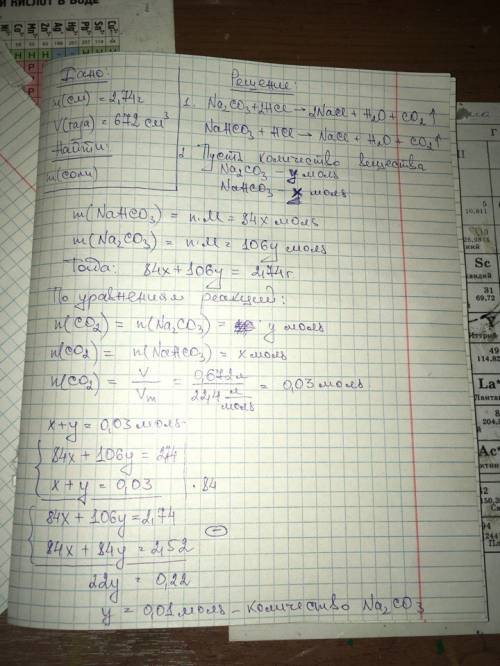 И КИСЛОТ В ВОДЕ
Дано:
m(см) = 2,74г
V(газа) = 672 см³
Найти:
m(соли)
Решение:
1. Na₂CO₃+2HCl → 2NaCl + H₂O + CO₂↑
NaHCO₃ + HCl → NaCl + H₂O + CO₂↑
2. Пусть количество вещества
Na₂CO₃ – y моль
NaHCO₃ – x моль
m(NaHCO₃) = n·M = 84x моль
m(Na₂CO₃) = n·M = 106y моль
Тогда: 84x + 106y = 2,74г
По уравнениям реакций:
n(CO₂) = n(Na₂CO₃) = y моль
n(CO₂) = n(NaHCO₃) = x моль
n(CO₂) = V/Vm = 0,672л / 22,4 л/моль = 0,03 моль
x+y = 0,03 моль
84x + 106y = 2,74
x + y = 0,03 · 84
84x + 106y = 2,74
84x + 84y = 2,52
22y = 0,22
y = 0,01 моль – количество Na₂CO₃
5
10,811
Sc
31
69,72
49
114,82
La*
Ac*